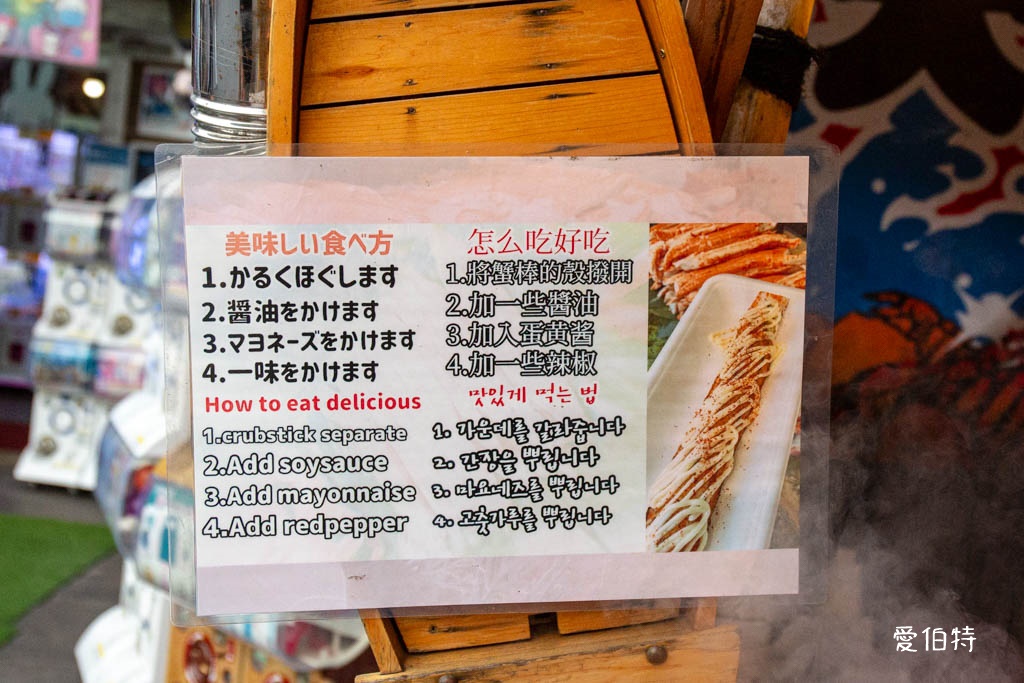 美味しい食べ方
1.かるくほぐします
2.醤油をかけます
3.マヨネーズをかけます
4.一味をかけます
怎么吃好吃
1.將蟹棒的殼撥開
2.加一些醬油
3.加入蛋黄酱
4.加一些辣椒
How to eat delicious
1.crubstick separate
2.Add soysauce
3.Add mayonnaise
4.Add redpepper
맛있게 먹는 법
1. 가운데를 갈라줍니다
2. 간장을 뿌립니다
3. 마요네즈를 뿌립니다
4. 고춧가루를 뿌립니다
愛伯特